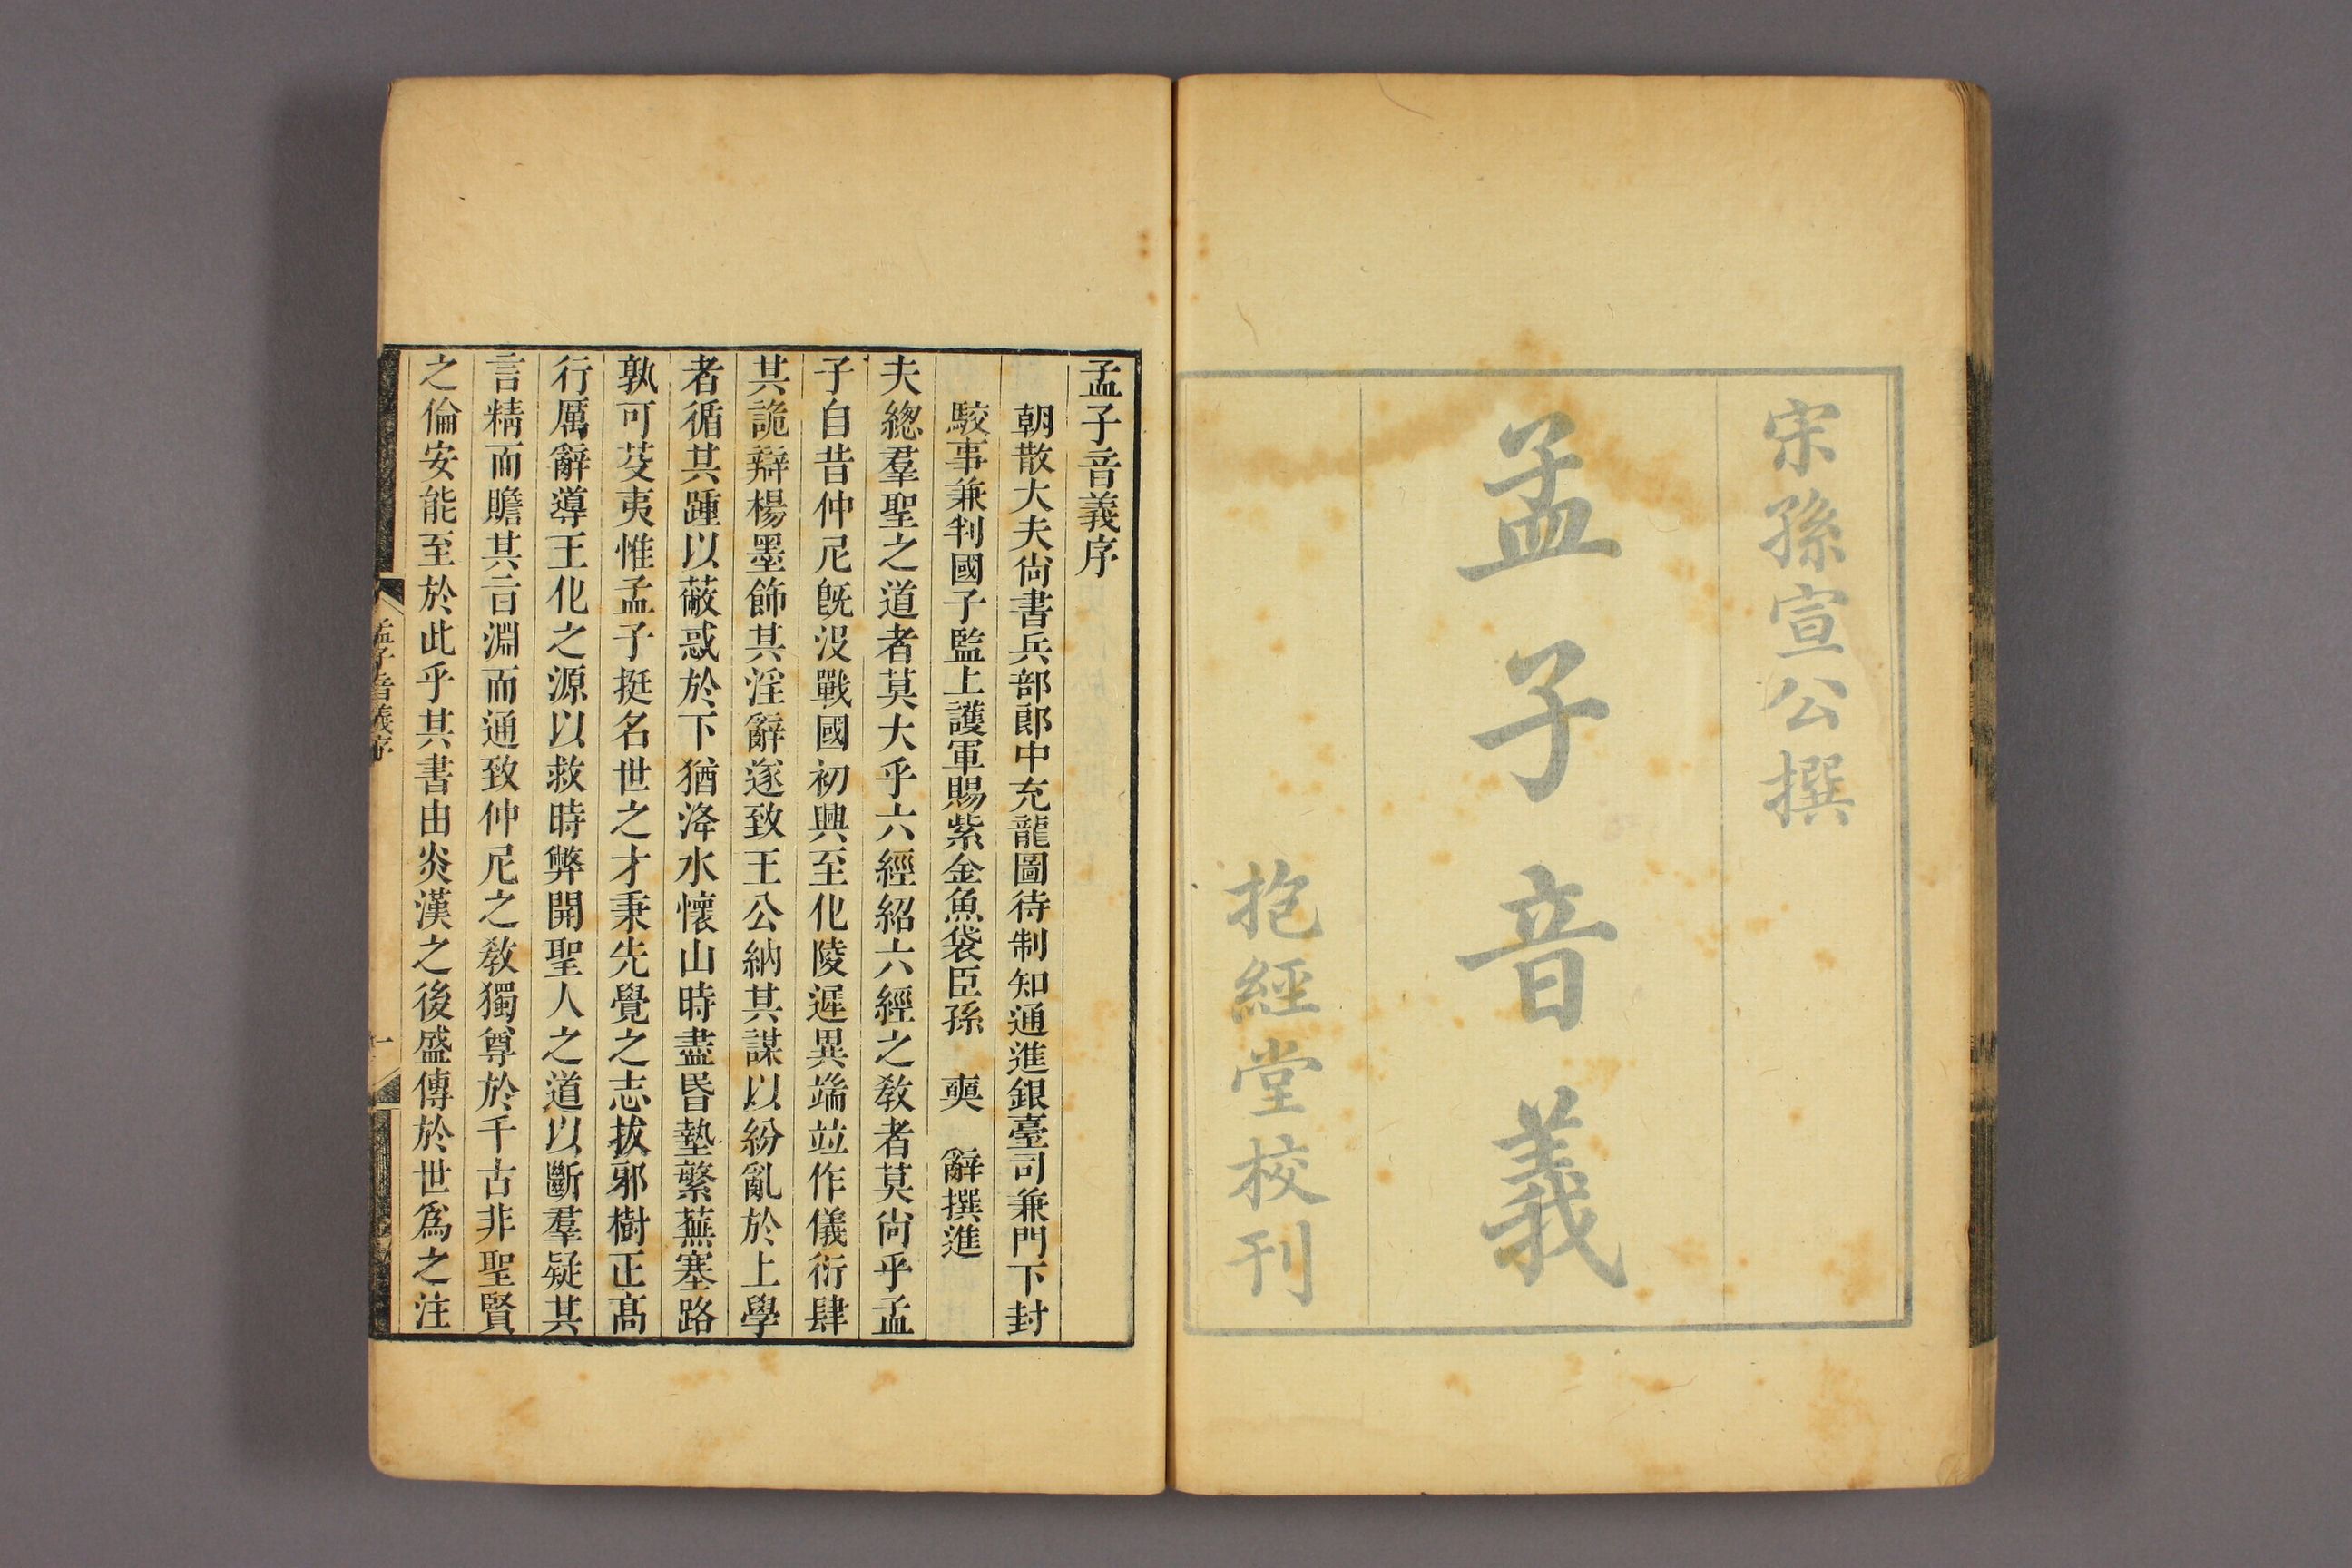 宋孫宣公撰
孟子音義
抱經堂校刊
孟子音義序
朝散大夫尙書兵部郎中充龍圖待制知通進銀臺司兼門下封
駮事兼判國子監上護軍賜紫金魚袋臣孫 奭 辭撰進
夫緫羣聖之道者莫大乎六經紹六經之敎者莫尙乎孟
子自昔仲尼旣沒戰國初興至化陵遲異端竝作儀衍肆
其詭辯楊墨飾其淫辭遂致王公納其謀以紛亂於上學
者循其踵以蔽惑於下猶洚水懷山時盡昬墊繁蕪塞路
孰可芟夷惟孟子挺名世之才秉先覺之志拔邪樹正髙
行厲辭導王化之源以救時弊開聖人之道以斷羣疑其
言精而贍其㫖淵而通致仲尼之敎獨尊於千古非聖賢
之倫安能至於此乎其書由炎漢之後盛傳於世爲之注
孟子音義序
一